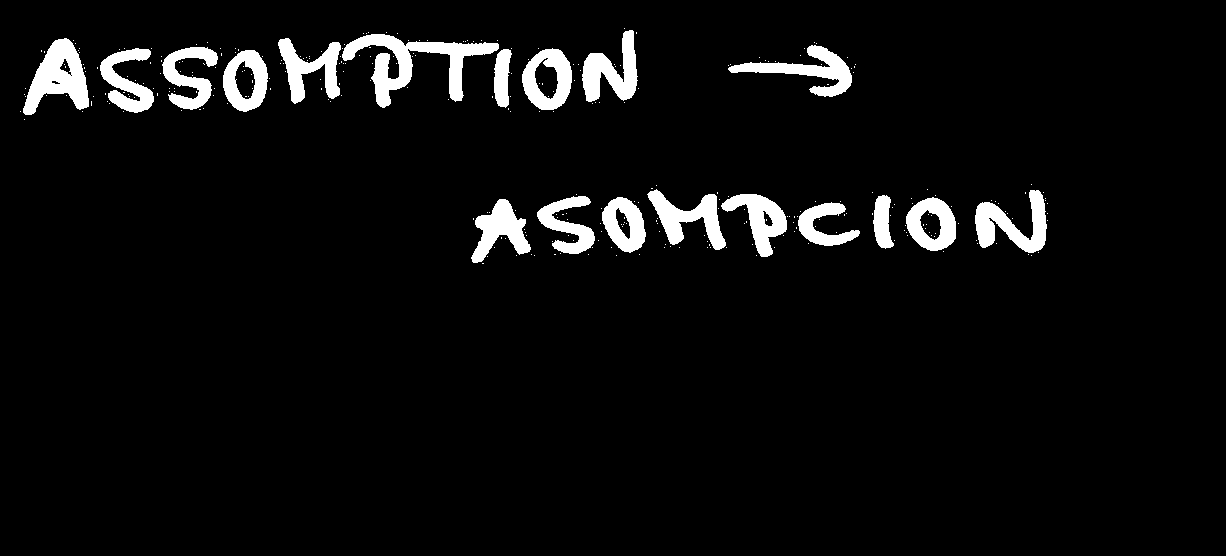 ASSOMPTION →
ASOMPCION